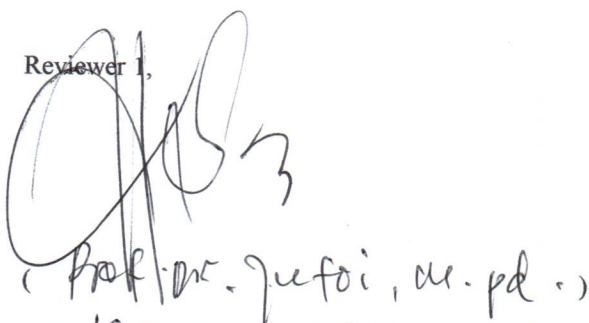 Reviewer 1,
( Prof. Dr. Jufri, M. Pd. )